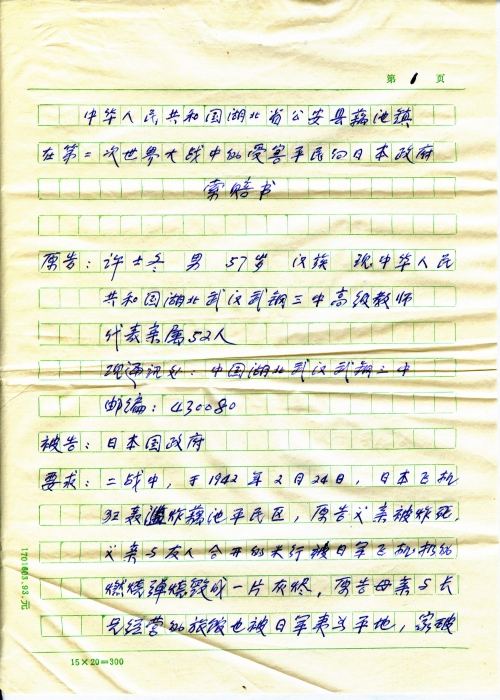 第 1 页
中华人民共和国湖北省公安县藕池镇
在第二次世界大战中的受害平民向日本政府
索赔书
原告：许士冬 男 57岁 汉族 现中华人民
共和国湖北武汉武钢三中高级教师
代表亲属52人
现通讯处：中国湖北武汉武钢三中
邮编：430080
被告：日本国政府
要求：二战中，于1942年2月24日，日本飞机
狂轰滥炸藕池平民区，原告父亲被炸死，
父亲与友人合开的木行被日军飞机扔的
燃烧弹烧毁成一片灰烬，原告母亲与长
兄经营的旅馆也被日军夷为平地，家被
15×20=300